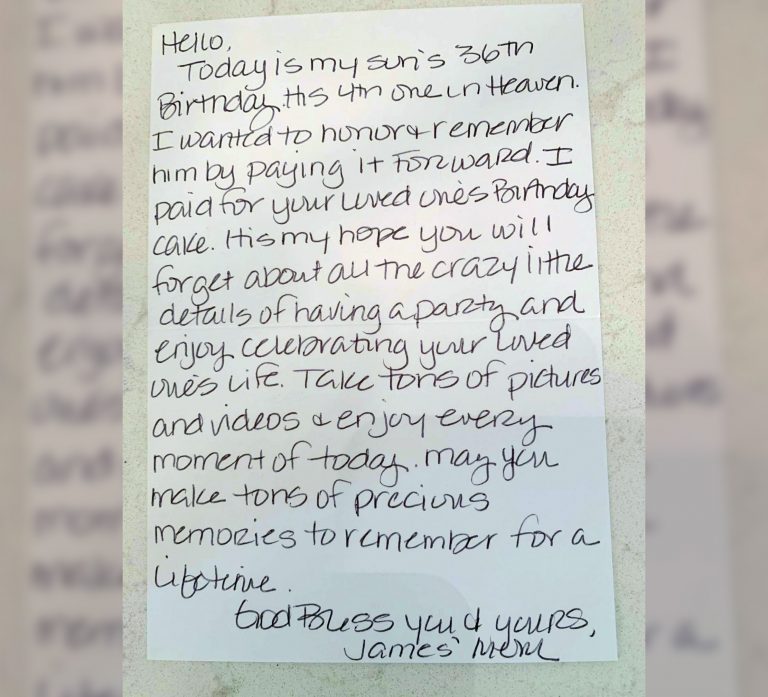 Hello,
Today is my son's 36th
Birthday. His 4th one in Heaven.
I wanted to honor & remember
him by paying it Forward. I
paid for your loved one's Birthday
cake. It is my hope you will
forget about all the crazy little
details of having a party and
enjoy celebrating your loved
one's life. Take tons of pictures
and videos & enjoy every
moment of today. May you
make tons of precious
memories to remember for a
lifetime.
God Bless you & yours,
James' Mom